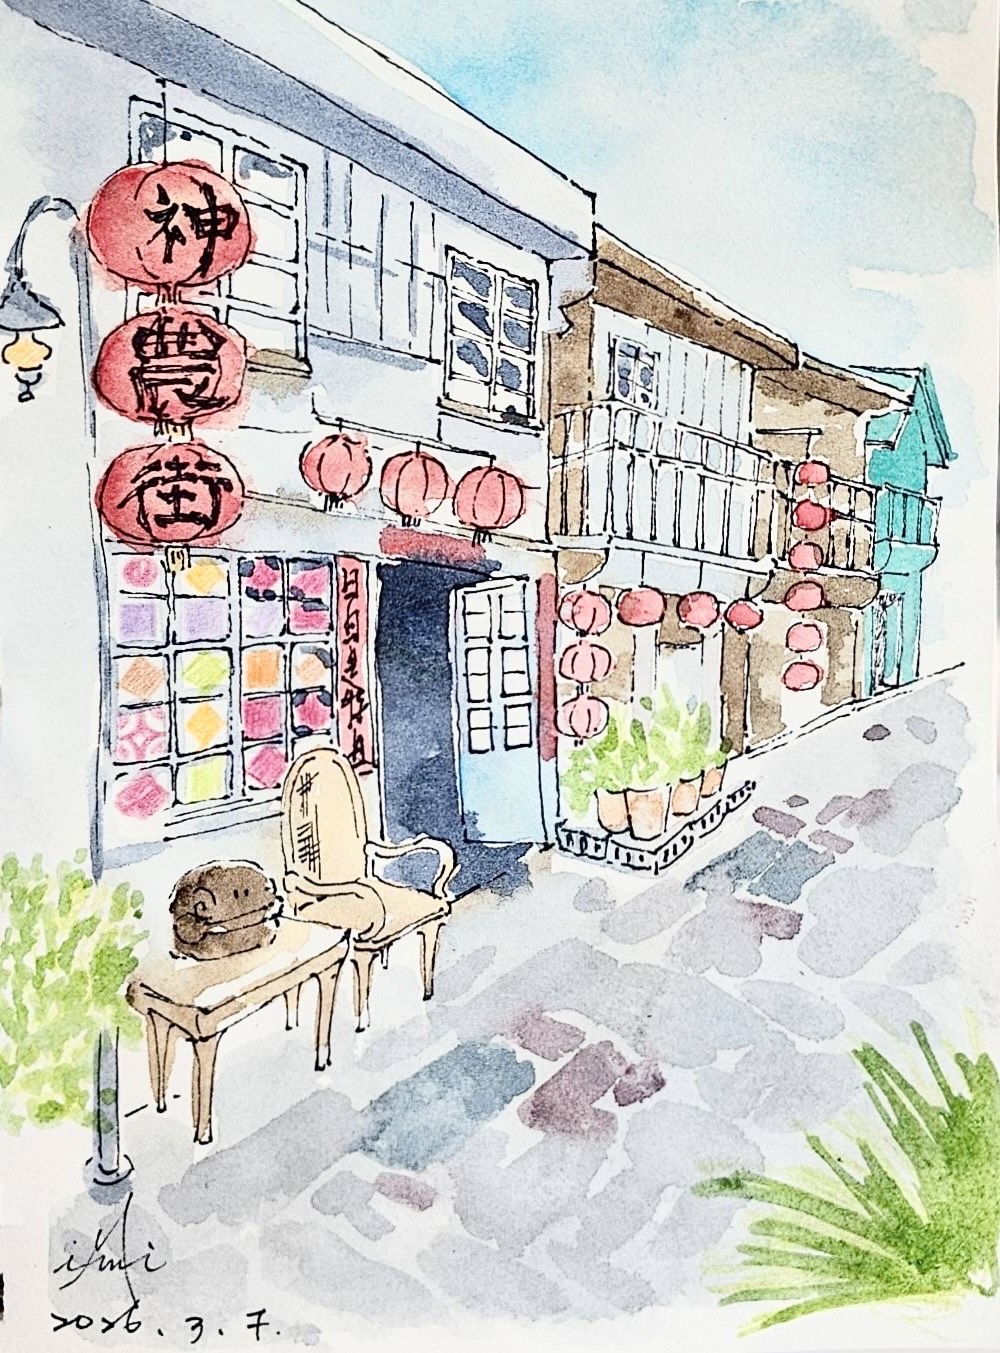 神
農
街
日日是好日
2026.3.7.